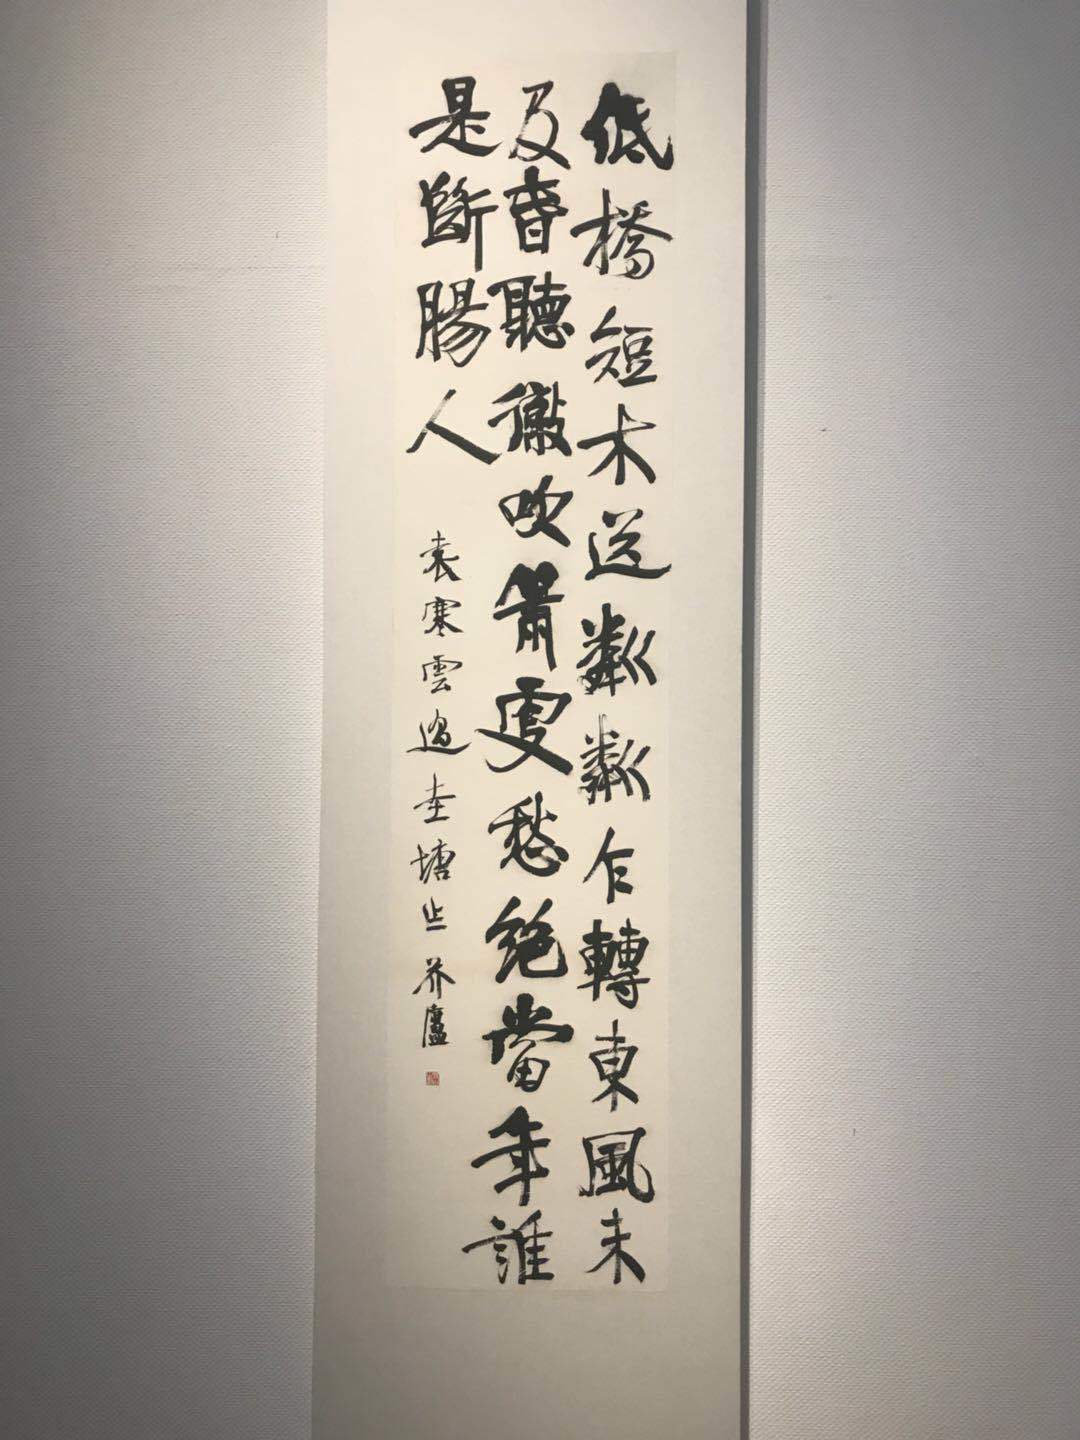 低橋短木送粼粼乍轉東風未
及春聽徹吹簫更愁絕當年誰
是斷腸人
袁寒雲過圭塘 芥廬